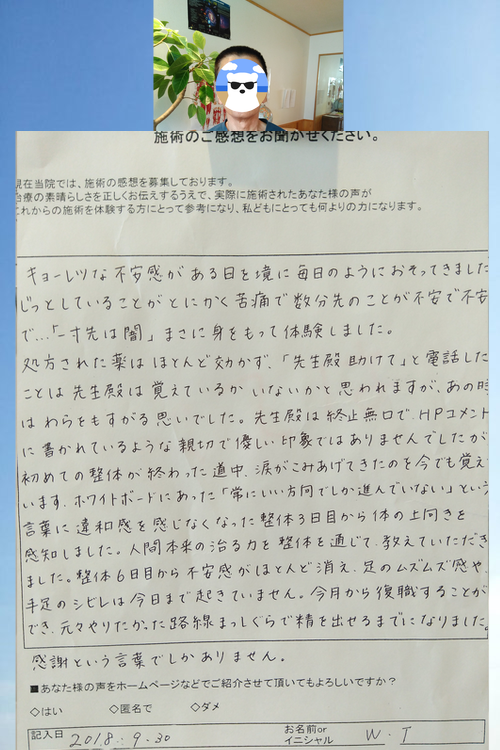 施術のご感想をお聞かせください。
現在当院では、施術の感想を募集しております。
治療の素晴らしさを正しくお伝えするうえで、実際に施術されたあなた様の声が
これからの施術を体験する方にとって参考になり、私どもにとっても何よりの力になります。
キョーレツな不安感がある日を境に毎日のようにおそってきました
じっとしていることがとにかく苦痛で数分先のことが不安で不安
で…「一寸先は闇」まさに身をもって体験しました。
処方された薬はほとんど効かず、「先生殿助けて」と電話した
ことは先生殿は覚えているかいないかと思われますが、あの時
はわらをもすがる思いでした。先生殿は終止無口で、HPコメント
に書かれているような親切で優しい印象ではありませんでしたが
初めての整体が終わった道中、涙がこみあげてきたのを今でも覚えて
います。ホワイトボードにあった「常にいい方向でしか進んでいない」という
言葉に違和感を感じなくなった整体3日目から体の上向きを
感知しました。人間本来の治る力を整体を通じて、教えていただき
ました。整体6日目から不安感がほとんど消え、足のムズムズ感や、
手足のシビレは今日まで起きていません。今月から復職することが
でき、元々やりたかった路線まっしぐらで精を出せるまでになりました。
感謝という言葉でしかありません。
■あなた様の声をホームページなどでご紹介させて頂いてもよろしいですか？
◇はい ◇匿名で ◇ダメ
記入日 2018.9.30 お名前or イニシャル W.T